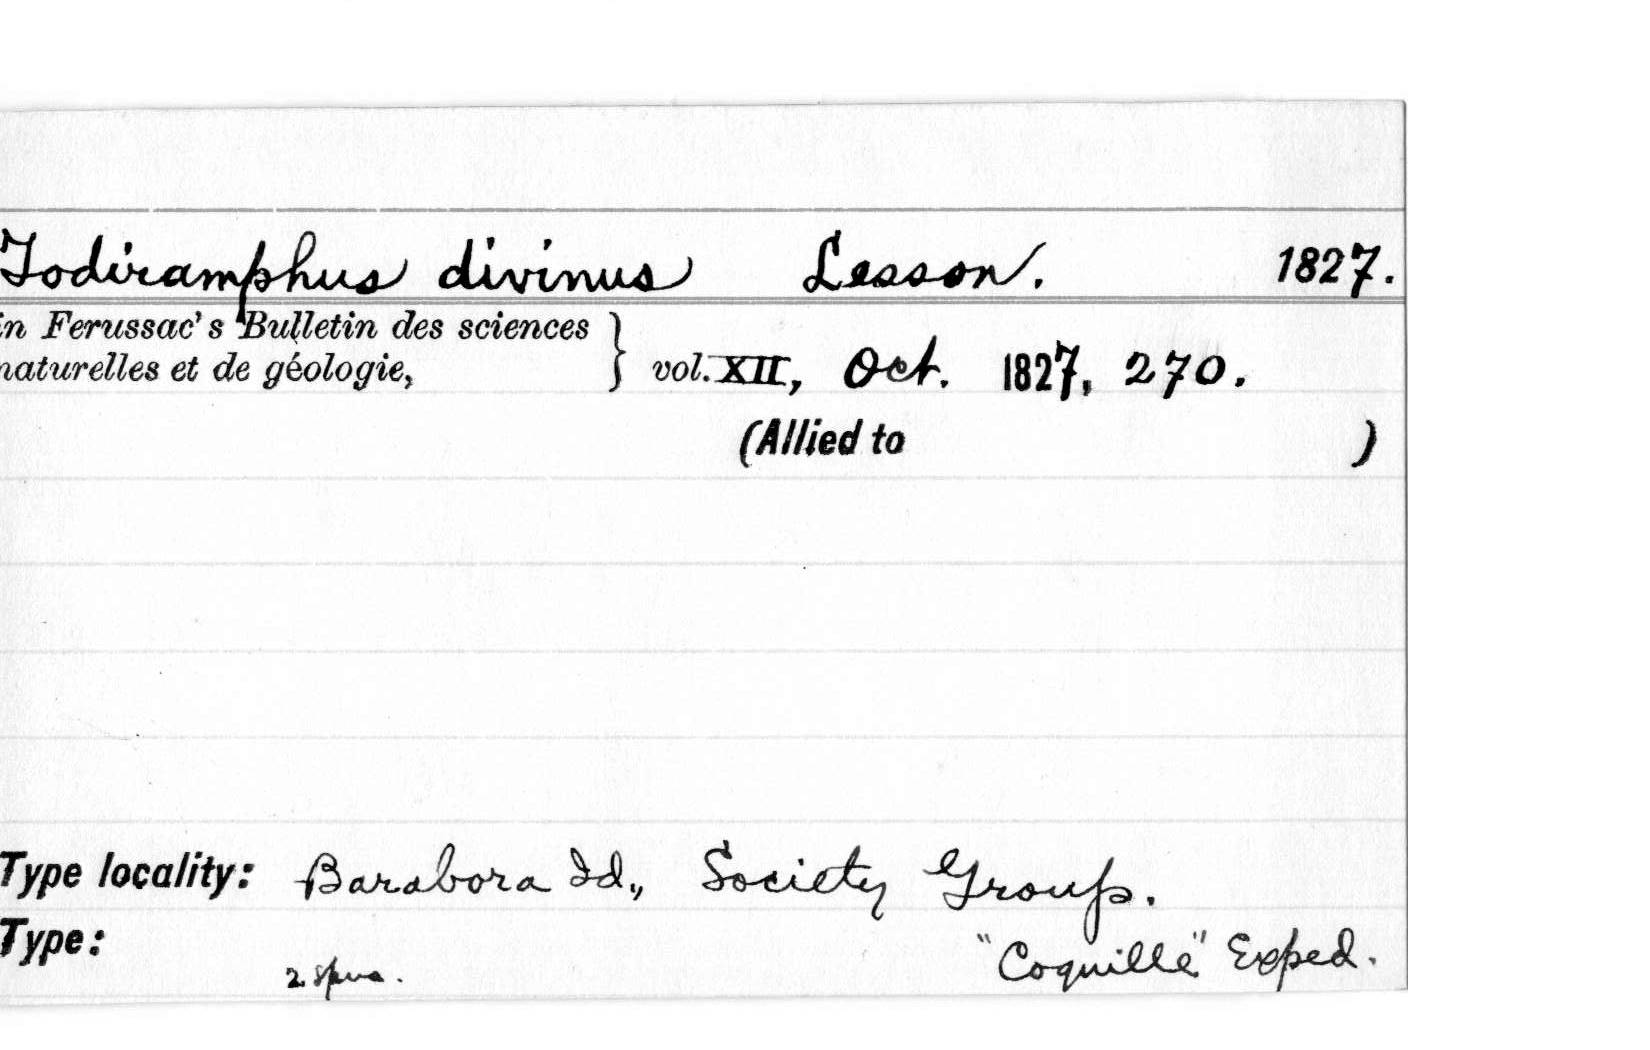 Todiramphus divinus Lesson. 1827.
in Ferussac's Bulletin des sciences
naturelles et de géologie, } vol. XII, Oct. 1827, 270.
(Allied to )
Type locality: Barabora Id., Society Group.
Type: "Coquille" Exped.
2